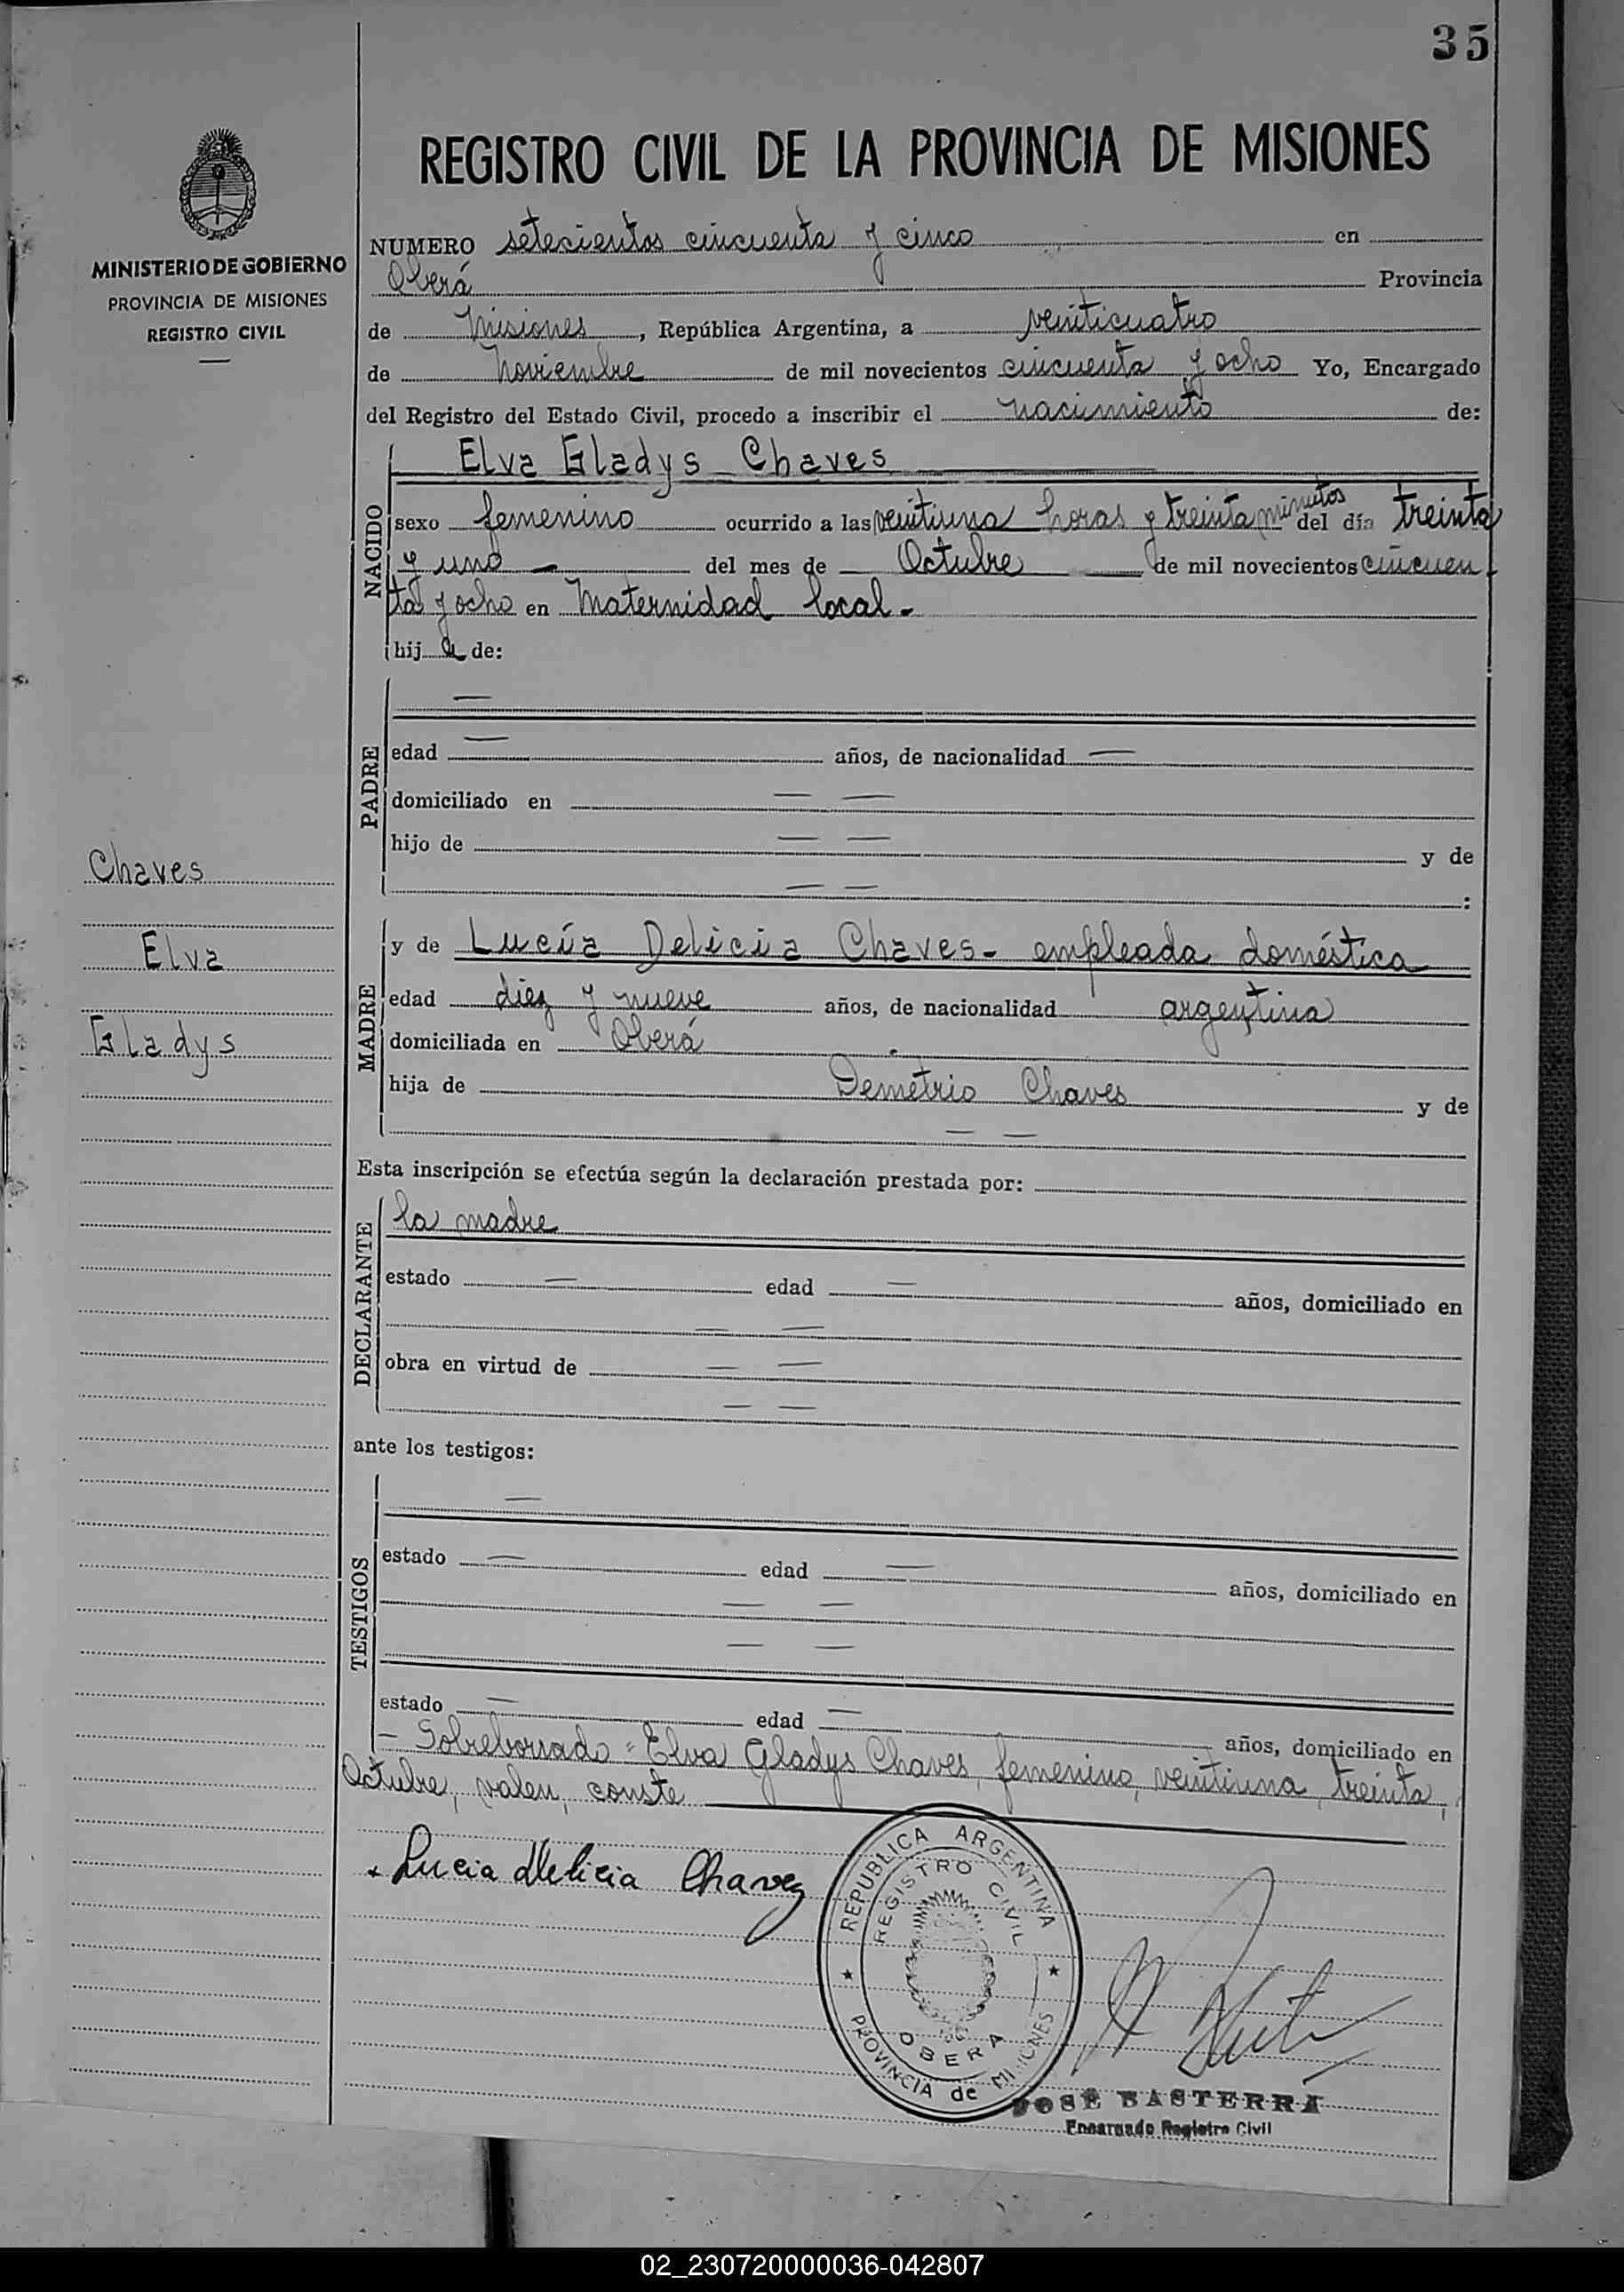 35
REGISTRO CIVIL DE LA PROVINCIA DE MISIONES
MINISTERIO DE GOBIERNO
PROVINCIA DE MISIONES
REGISTRO CIVIL
NUMERO setecientos cincuenta y cinco en
Oberá Provincia
de Misiones, República Argentina, a veinticuatro
de Noviembre de mil novecientos cincuenta y ocho Yo, Encargado
del Registro del Estado Civil, procedo a inscribir el nacimiento de:
NACIDO
Elva Gladys Chaves
sexo femenino ocurrido a las veintiuna horas y treinta minutos del día treinta
y uno — del mes de — Octubre — de mil novecientos cincuen
ta y ocho en Maternidad local.-
hija de:
PADRE
—
edad — años, de nacionalidad —
domiciliado en — —
hijo de — — y de
— — :
Chaves
Elva
Gladys
MADRE
y de Lucía Delicia Chaves- empleada doméstica
edad diez y nueve años, de nacionalidad argentina
domiciliada en Oberá
hija de Demetrio Chaves y de
— —
Esta inscripción se efectúa según la declaración prestada por:
DECLARANTE
la madre
estado — edad — años, domiciliado en
— —
obra en virtud de — —
— —
ante los testigos:
TESTIGOS
—
estado — edad — años, domiciliado en
— —
— —
estado — edad — años, domiciliado en
- Sobreborrado = Elva Gladys Chaves, femenino, veintiuna, treinta,
Octubre, valen, conste
Lucia Delicia Chavez
REPUBLICA ARGENTINA
REGISTRO CIVIL
OBERA
PROVINCIA de MISIONES
JOSÉ BASTERRA
Encargado Registro Civil
02_230720000036-042807